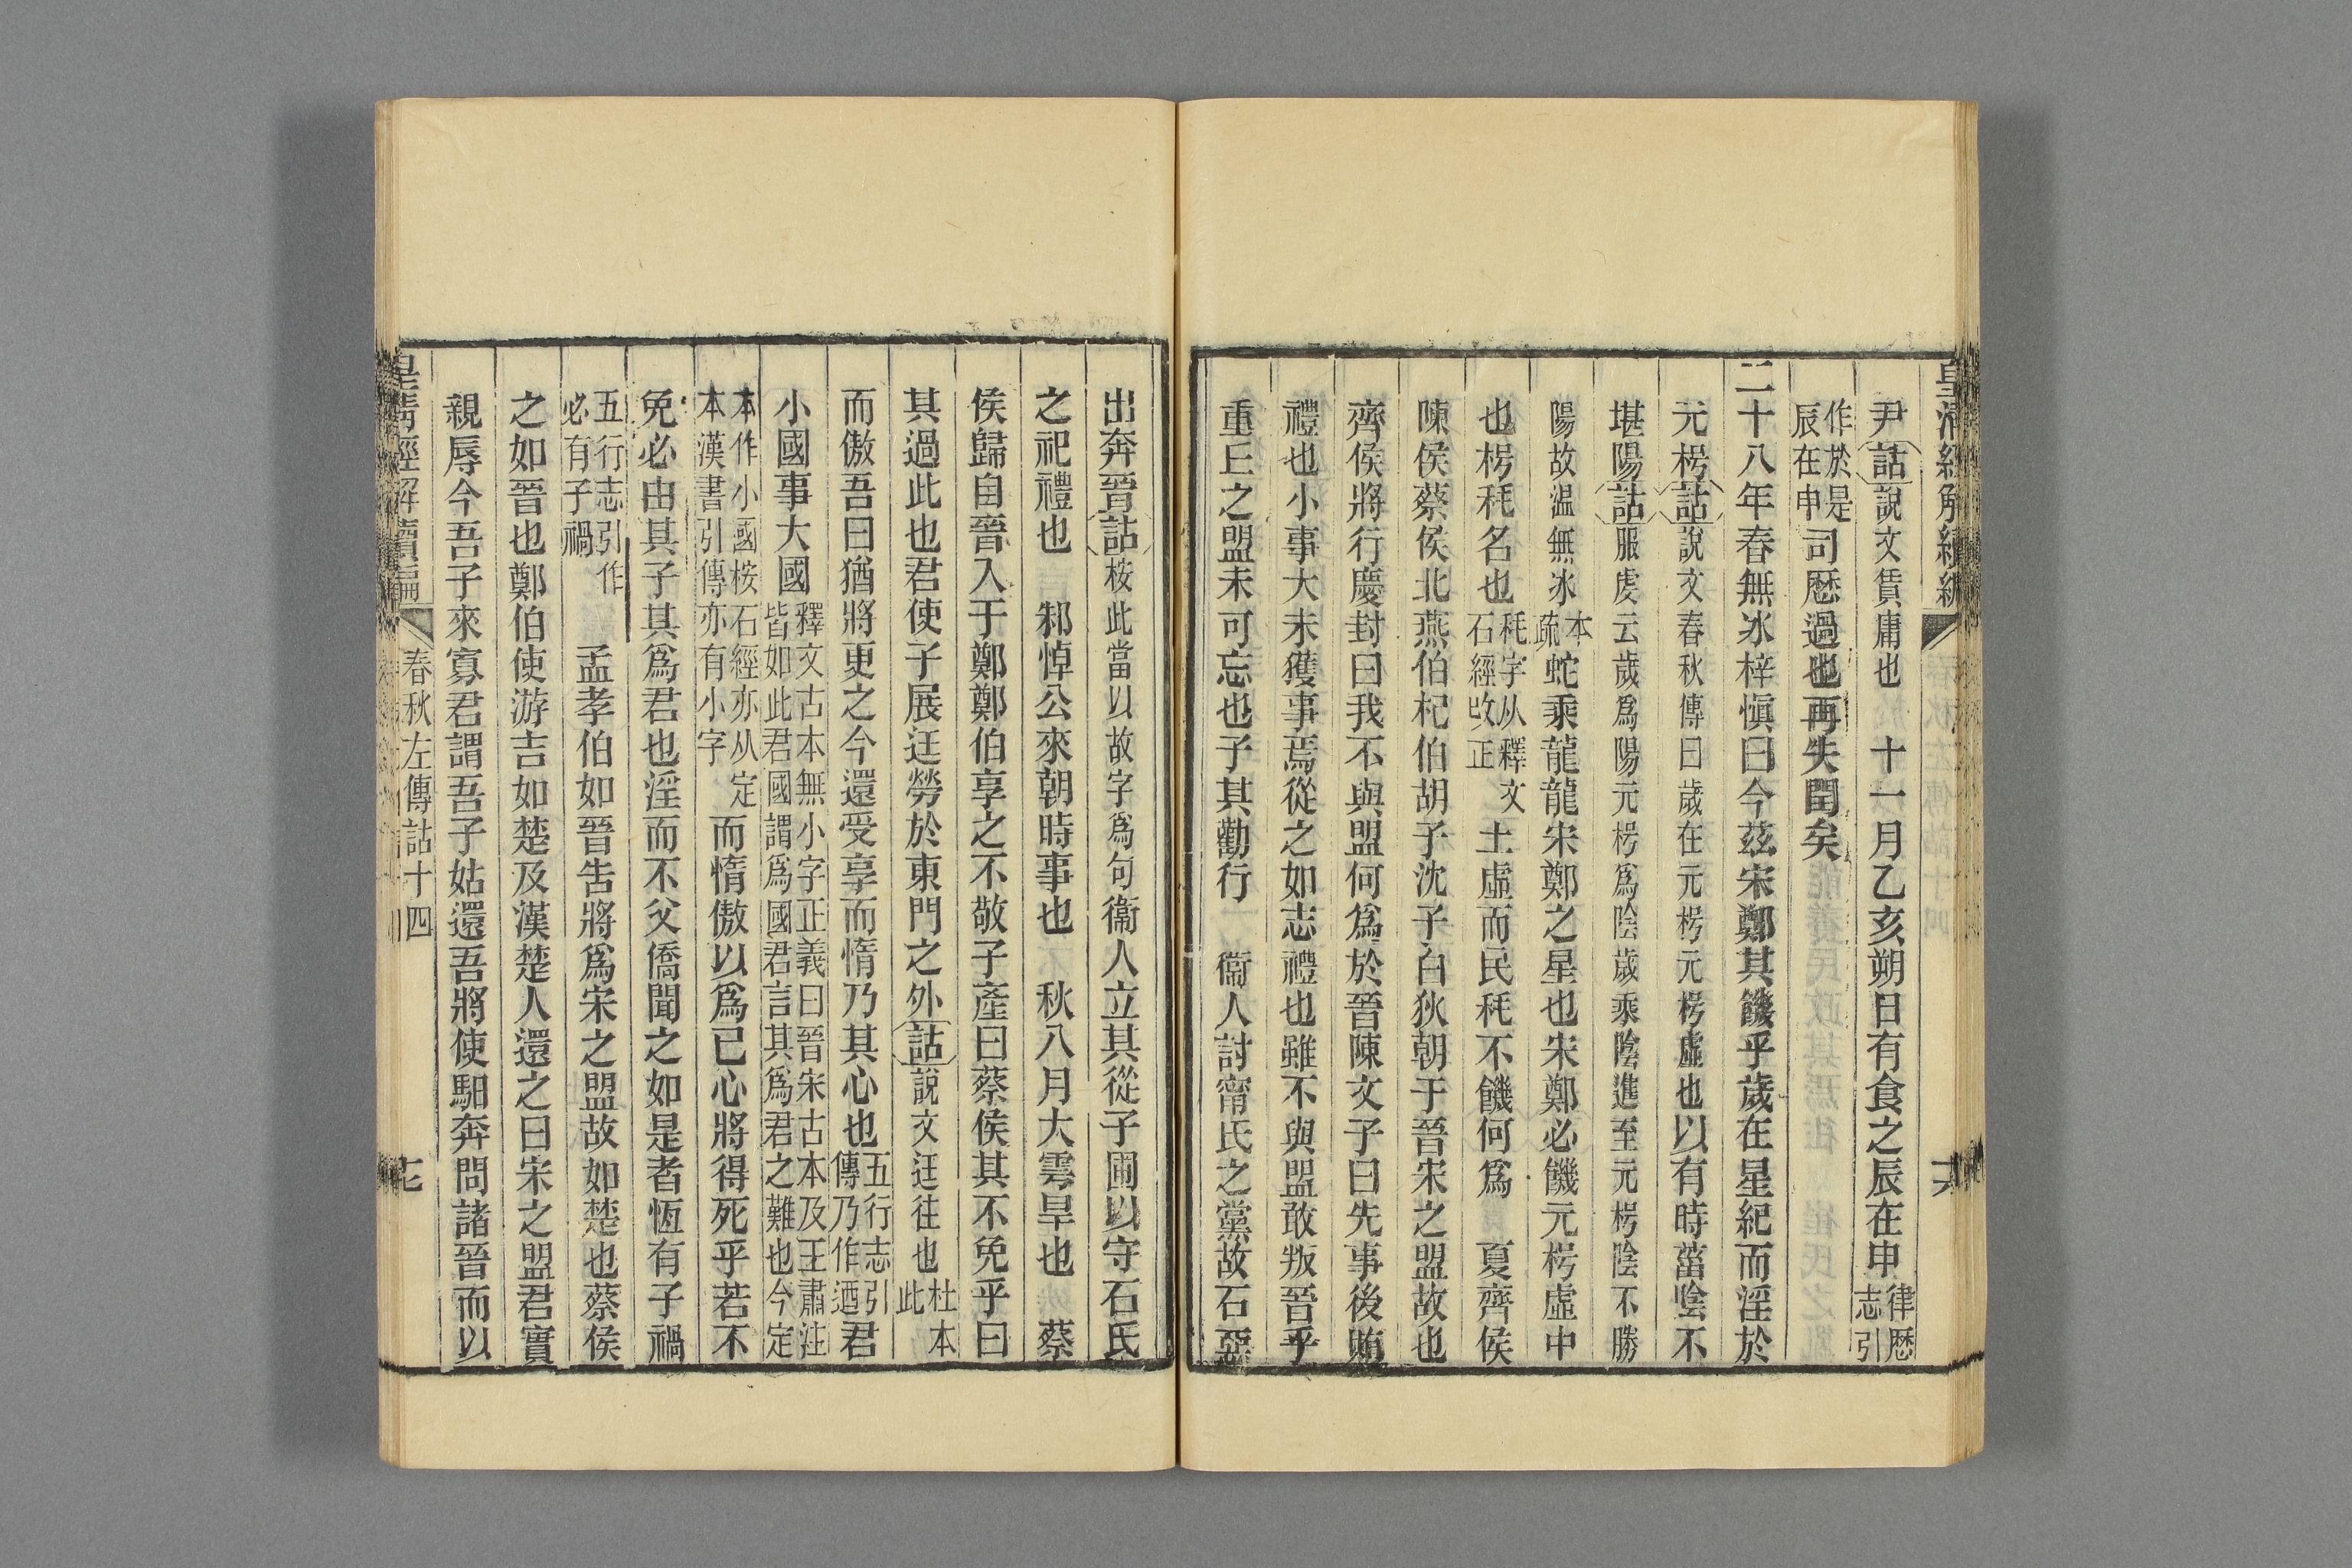 皇清經解續編
尹詁說文賃庸也 十一月乙亥朔日有食之辰在申律歷志引
作於是辰在申司歷過也再失閏矣
二十八年春無冰梓愼曰今茲宋鄭其饑乎歲在星紀而淫於
元枵詁說文春秋傳曰歲在元枵元枵虛也以有時菑陰不
堪陽詁服虔云歲爲陽元枵爲陰歲乘陰進至元枵陰不勝
陽故温無冰本疏蛇乘龍龍宋鄭之星也宋鄭必饑元枵虛中
也枵秏名也秏字从釋文石經改正土虛而民秏不饑何爲 夏齊侯
陳侯蔡侯北燕伯杞伯胡子沈子白狄朝于晉宋之盟故也
齊侯將行慶封曰我不與盟何爲於晉陳文子曰先事後賄
禮也小事大未獲事焉從之如志禮也雖不與盟敢叛晉乎
重丘之盟未可忘也子其勸行 衞人討甯氏之黨故石惡
出奔晉詁桉此當以故字爲句衞人立其從子圃以守石氏
之祀禮也 邾悼公來朝時事也 秋八月大雩旱也 蔡
侯歸自晉入于鄭鄭伯享之不敬子產曰蔡侯其不免乎曰
其過此也君使子展迋勞於東門之外詁說文迋往也杜本此
而傲吾曰猶將更之今還受享而惰乃其心也五行志引傳乃作迺君
小國事大國釋文古本無小字正義曰晉宋古本及王肅注皆如此君國謂爲國君言其爲君之難也今定
本作小國桉石經亦从定本漢書引傳亦有小字而惰傲以爲己心將得死乎若不
免必由其子其爲君也淫而不父僑聞之如是者恆有子禍
五行志引作必有子禍 孟孝伯如晉告將爲宋之盟故如楚也蔡侯
之如晉也鄭伯使游吉如楚及漢楚人還之曰宋之盟君實
親辱今吾子來寡君謂吾子姑還吾將使馹奔問諸晉而以
皇清經解續編 春秋左傳詁十四